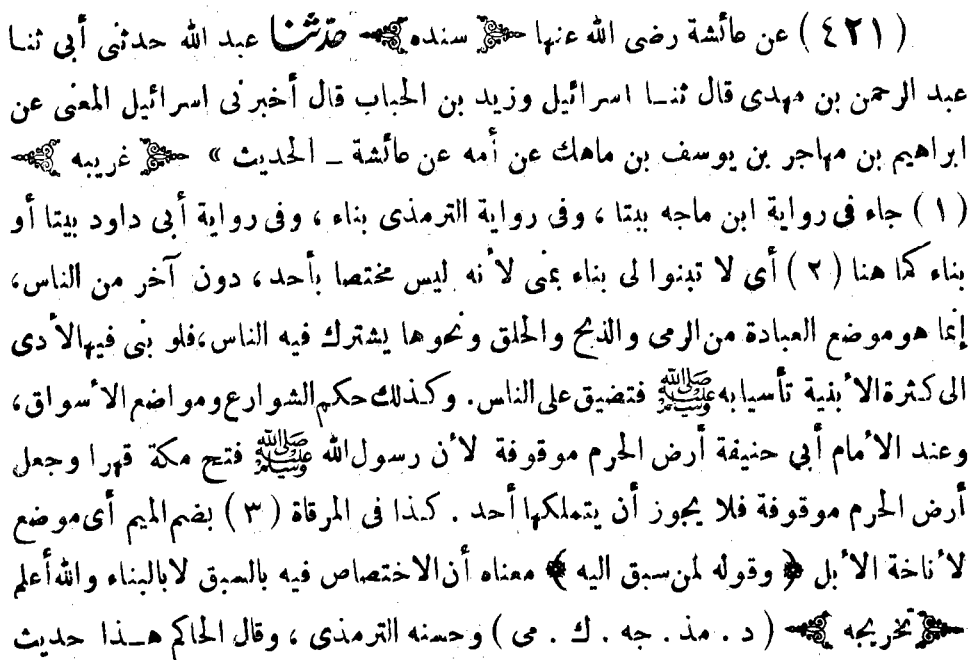 ( ٤٢١ ) عن عائشة رضى الله عنها ﴿ سنده ﴾ حدثنا عبد الله حدثنى أبى ثنا
عبد الرحمن بن مهدى قال ثنا اسرائيل وزيد بن الحباب قال أخبرنى اسرائيل المعنى عن
ابراهيم بن مهاجر بن يوسف بن ماهك عن أمه عن عائشة ـ الحديث » ﴿ غريبه ﴾
( ١ ) جاء فى رواية ابن ماجه بيتا ، وفى رواية الترمذى بناء ، وفى رواية أبى داود بيتا أو
بناء كما هنا ( ٢ ) أى لا تبنوا لى بناء بمنى لأنه ليس مختصا بأحد ، دون آخر من الناس،
إنما هو موضع العبادة من الرمى والذبح والحلق ونحوها يشترك فيه الناس،فلو بنى فيها لأدى
الى كثرة الأبنية تأسيا به ﷺ فتضيق على الناس. وكذلك حكم الشوارع ومواضع الأسواق،
وعند الأمام أبي حنيفة أرض الحرم موقوفة لأن رسول الله ﷺ فتح مكة قهرا وجعل
أرض الحرم موقوفة فلا يجوز أن يتملكها أحد . كذا فى المرقاة ( ٣ ) بضم الميم أى موضع
لأناخة الأبل ﴿ وقوله لمن سبق اليه ﴾ معناه أن الاختصاص فيه بالسبق لا بالبناء والله أعلم
﴿ تخريجه ﴾ ( د . مذ . جه . ك . مى ) وحسنه الترمذى ، وقال الحاكم هذا حديث